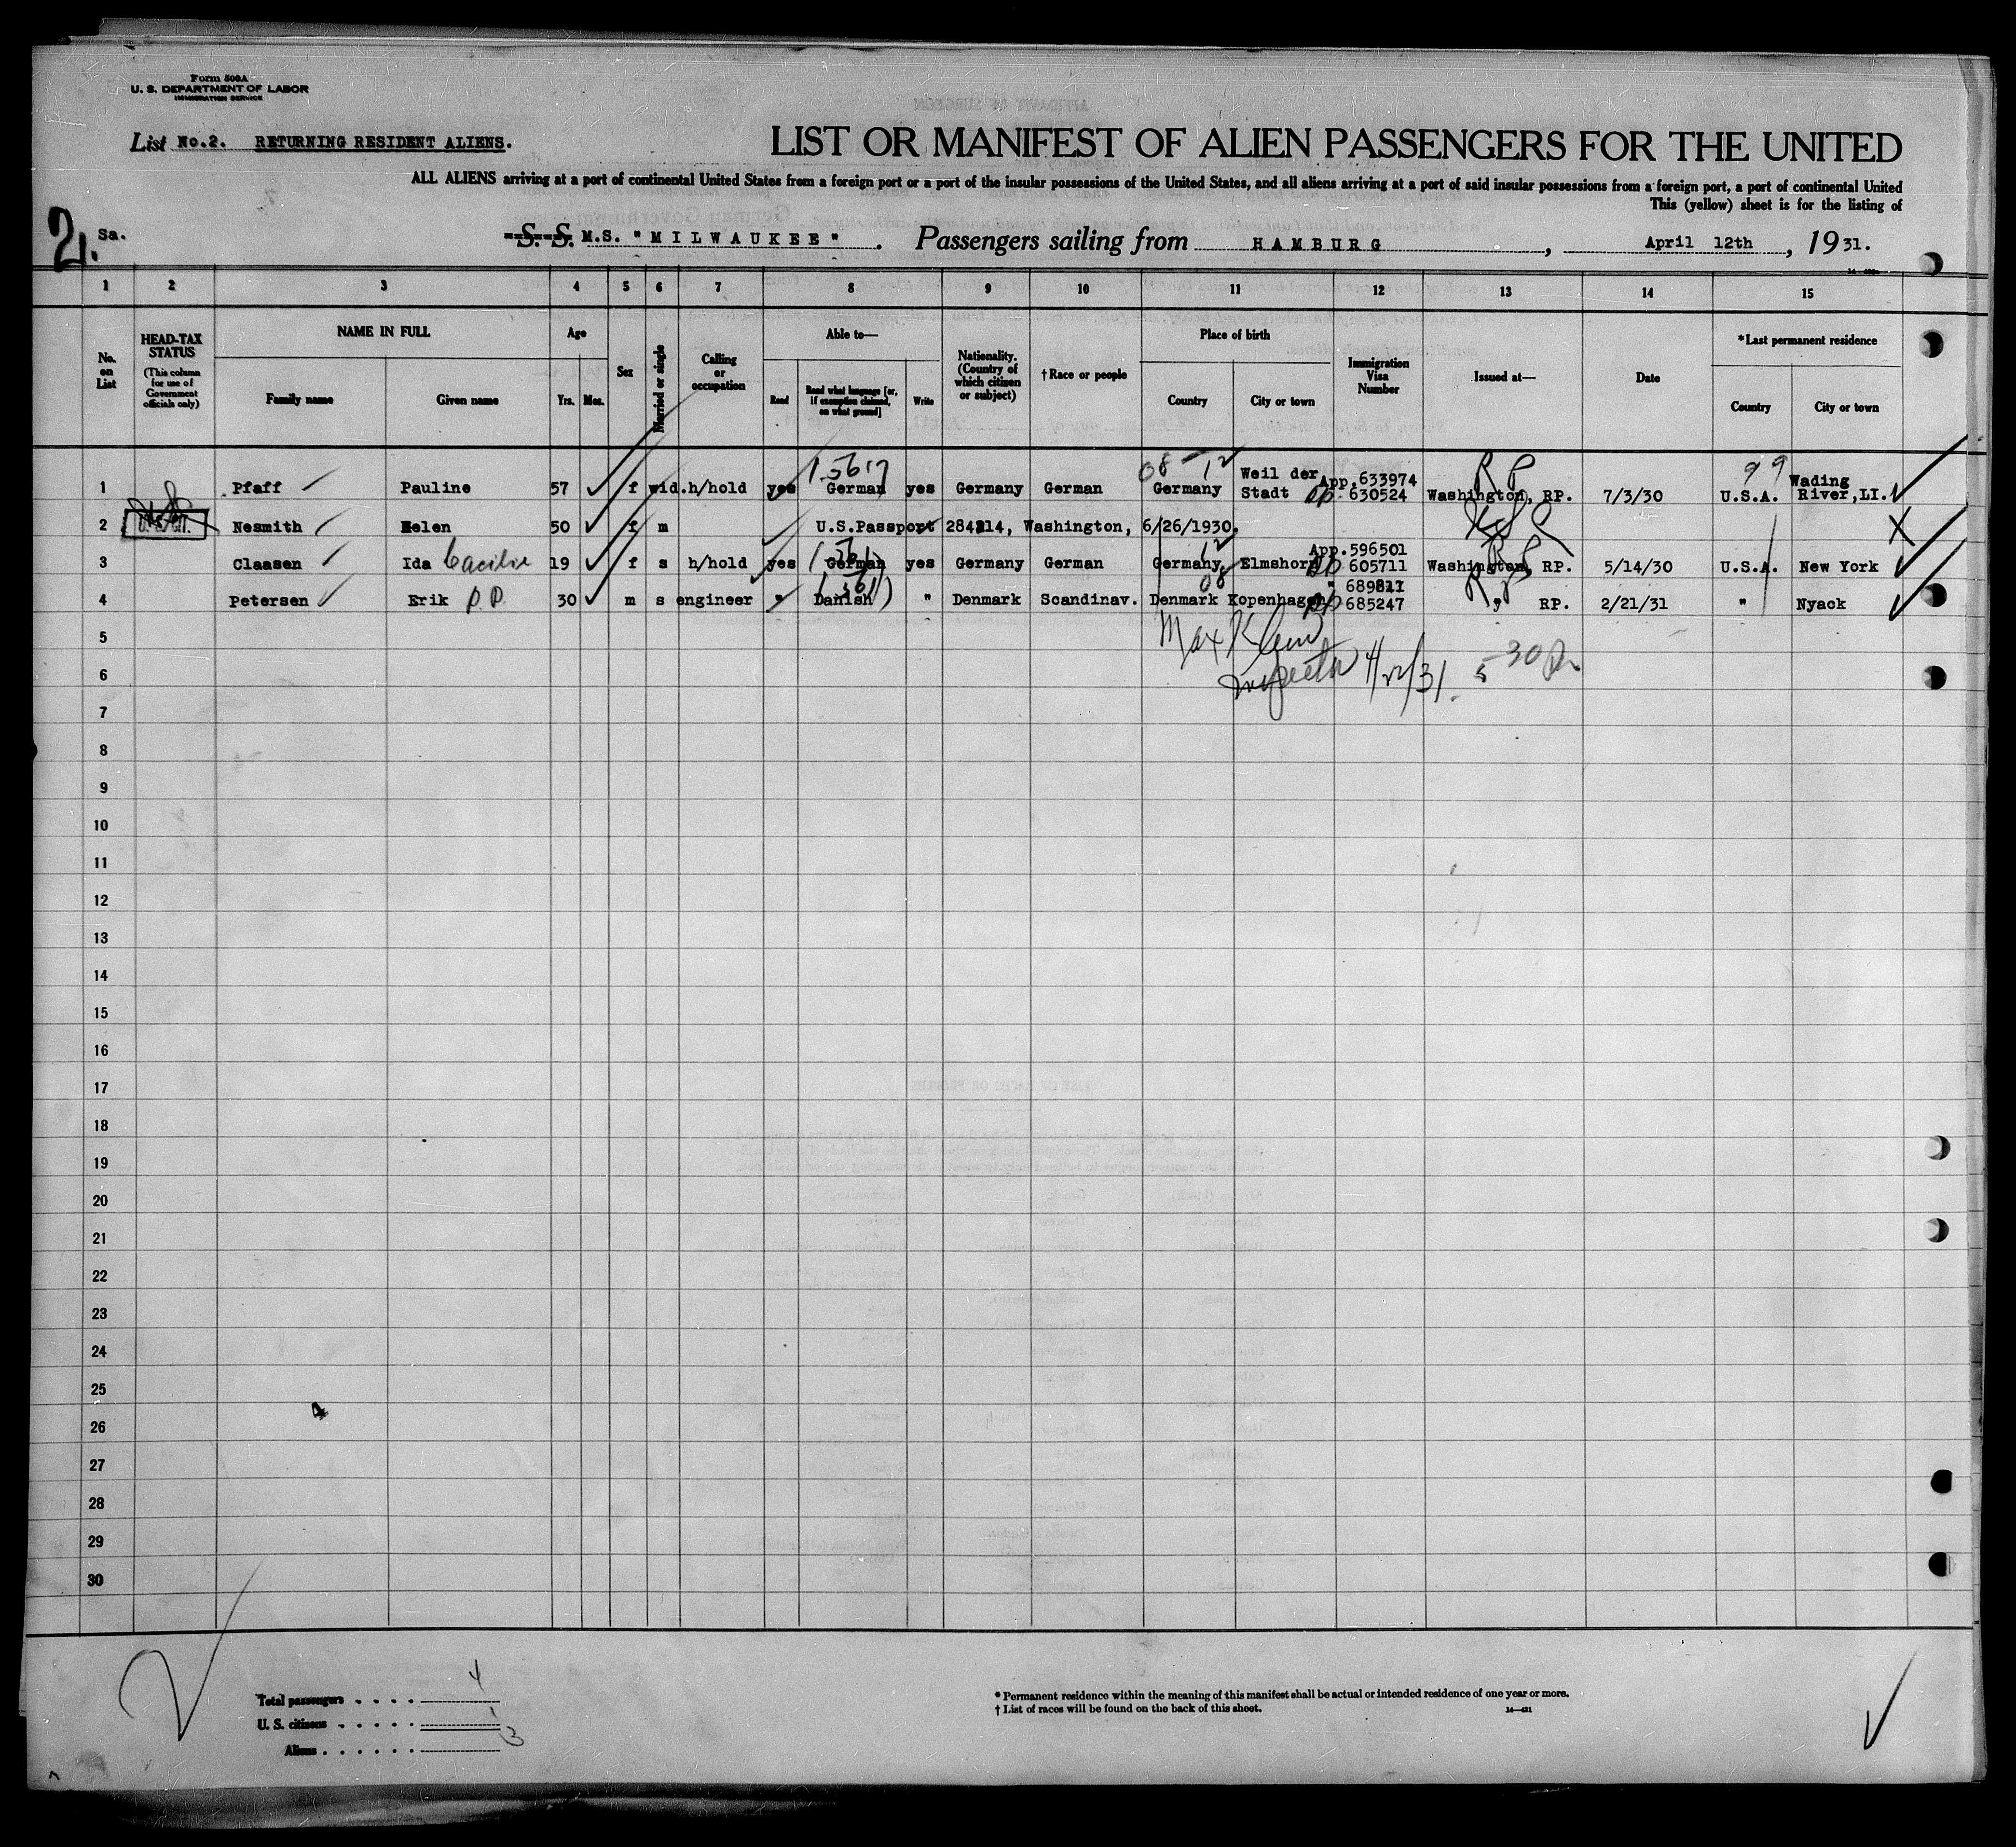 Form 500A
U. S. DEPARTMENT OF LABOR
IMMIGRATION SERVICE
List No.2. RETURNING RESIDENT ALIENS.
LIST OR MANIFEST OF ALIEN PASSENGERS FOR THE UNITED
ALL ALIENS arriving at a port of continental United States from a foreign port or a port of the insular possessions of the United States, and all aliens arriving at a port of said insular possessions from a foreign port, a port of continental United
This (yellow) sheet is for the listing of
2. Sa.
S. S. M.S. "MILWAUKEE". Passengers sailing from HAMBURG, April 12th, 1931.
1 2 3 4 5 6 7 8 9 10 11 12 13 14 15
No. on List
HEAD-TAX STATUS
(This column for use of Government officials only)
NAME IN FULL
Family name Given name
Age
Yrs. Mos.
Sex
Married or single
Calling or occupation
Able to—
Read
Read what language [or, if exemption claimed, on what ground]
Write
Nationality. (Country of which citizen or subject)
†Race or people
Place of birth
Country City or town
Immigration Visa Number
Issued at—
Date
*Last permanent residence
Country City or town
1 Pfaff Pauline 57 f wid. h/hold yes German yes Germany German Germany Weil der Stadt App.633974 RP 630524 Washington, RP. 7/3/30 U.S.A. Wading River,LI.
2 Nesmith Helen 50 f m U.S.Passport 284214, Washington, 6/26/1930.
3 Claasen Ida 19 f s h/hold yes German yes Germany German Germany Elmshorn App.596501 RP 605711 Washington, RP. 5/14/30 U.S.A. New York
4 Petersen Erik P.P. 30 m s engineer " Danish " Denmark Scandinav. Denmark Kopenhagen " 689811 RP 685247 " RP. 2/21/31 " Nyack
5 Max Klein
6 Inspector 4/22/31 5 30 P
7
8
9
10
11
12
13
14
15
16
17
18
19
20
21
22
23
24
25
26
27
28
29
30
Total passengers . . . . 4
U. S. citizens . . . . . 1
Aliens . . . . . . 3
* Permanent residence within the meaning of this manifest shall be actual or intended residence of one year or more.
† List of races will be found on the back of this sheet.
14—431